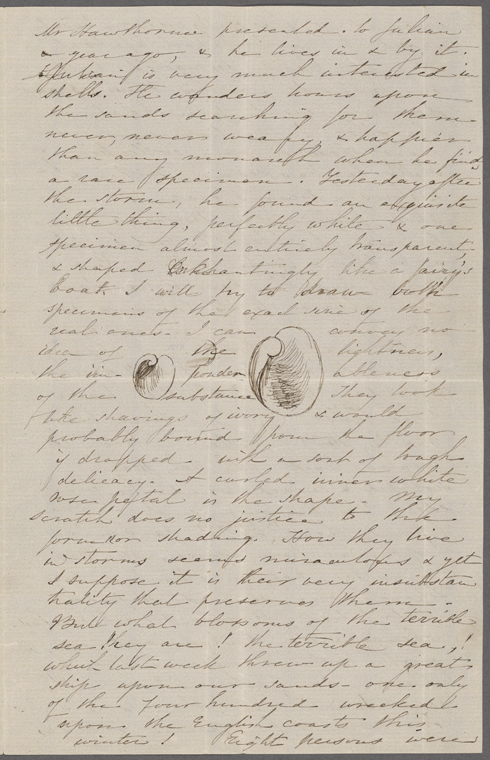 Mr Hawthorne presented to Julian
a year ago, & he lives in & by it.
Julian is very much interested in
shells. He wanders hours upon
the sands searching for them
never, never weary, & happier
than any monarch when he finds
a rare specimen. Yesterday after
the storm, he found an exquisite
little thing, perfectly white & one
specimen almost entirely transparent,
& shaped enchantingly like a fairy's
boat. I will try to draw both
specimens of the exact size of the
real ones. I can convey no
idea of the lightness,
the im- ponder ableness
of the substance They look
like shavings of ivory & would
probably bound from the floor
if dropped with a sort of tough
delicacy. A curled inner white
rose petal is the shape. My
scratch does no justice to this
form or shading. How they live
in storms seems miraculous & yet
I suppose it is their very insubstan
tiality that preserves them.
But what blossoms of the terrible
sea they are! the terrible sea,!
which last week threw up a great
ship upon our sands - one only
of the four hundred wrecked
upon the English coasts this
winter! Eight persons were